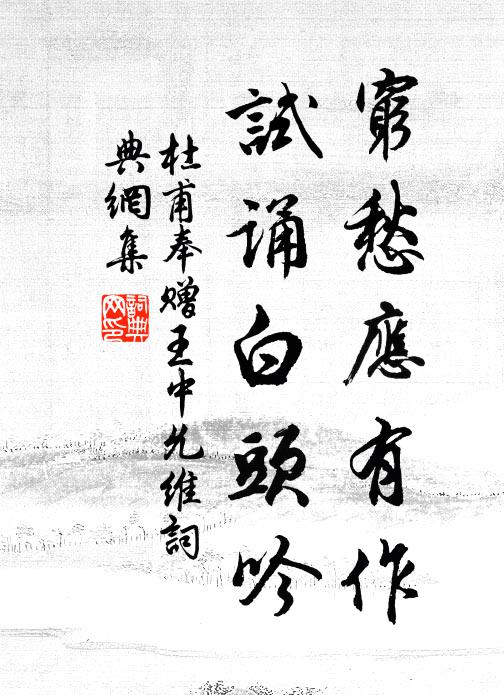 窮愁應有作
試誦白頭吟
杜甫奉贈王中允維詞
典網集
詞典
网印